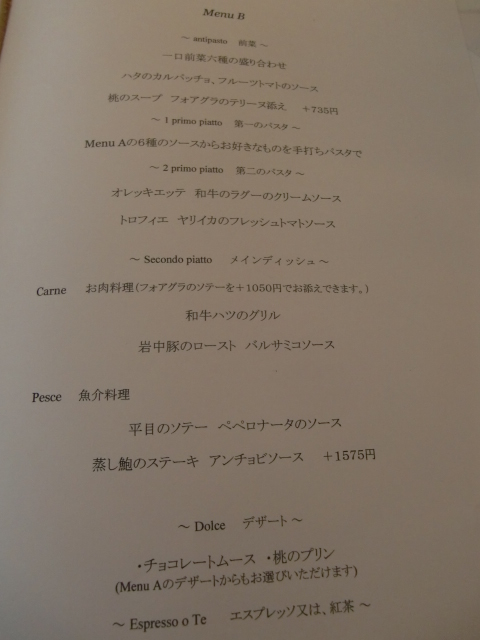 Menu B
～ antipasto　前菜 ～
一口前菜六種の盛り合わせ
ハタのカルパッチョ、フルーツトマトのソース
桃のスープ　フォアグラのテリーヌ添え　+735円
～ 1 primo piatto　第一のパスタ ～
Menu Aの6種のソースからお好きなものを手打ちパスタで
～ 2 primo piatto　第二のパスタ ～
オレッキエッテ　和牛のラグーのクリームソース
トロフィエ　ヤリイカのフレッシュトマトソース
～ Secondo piatto　メインディッシュ ～
Carne　お肉料理(フォアグラのソテーを＋1050円でお添えできます。)
和牛ハツのグリル
岩中豚のロースト　バルサミコソース
Pesce　魚介料理
平目のソテー　ペペロナータのソース
蒸し鮑のステーキ　アンチョビソース　+1575円
～ Dolce　デザート ～
・チョコレートムース ・桃のプリン
(Menu Aのデザートからもお選びいただけます)
～ Espresso o Te　エスプレッソ又は、紅茶 ～